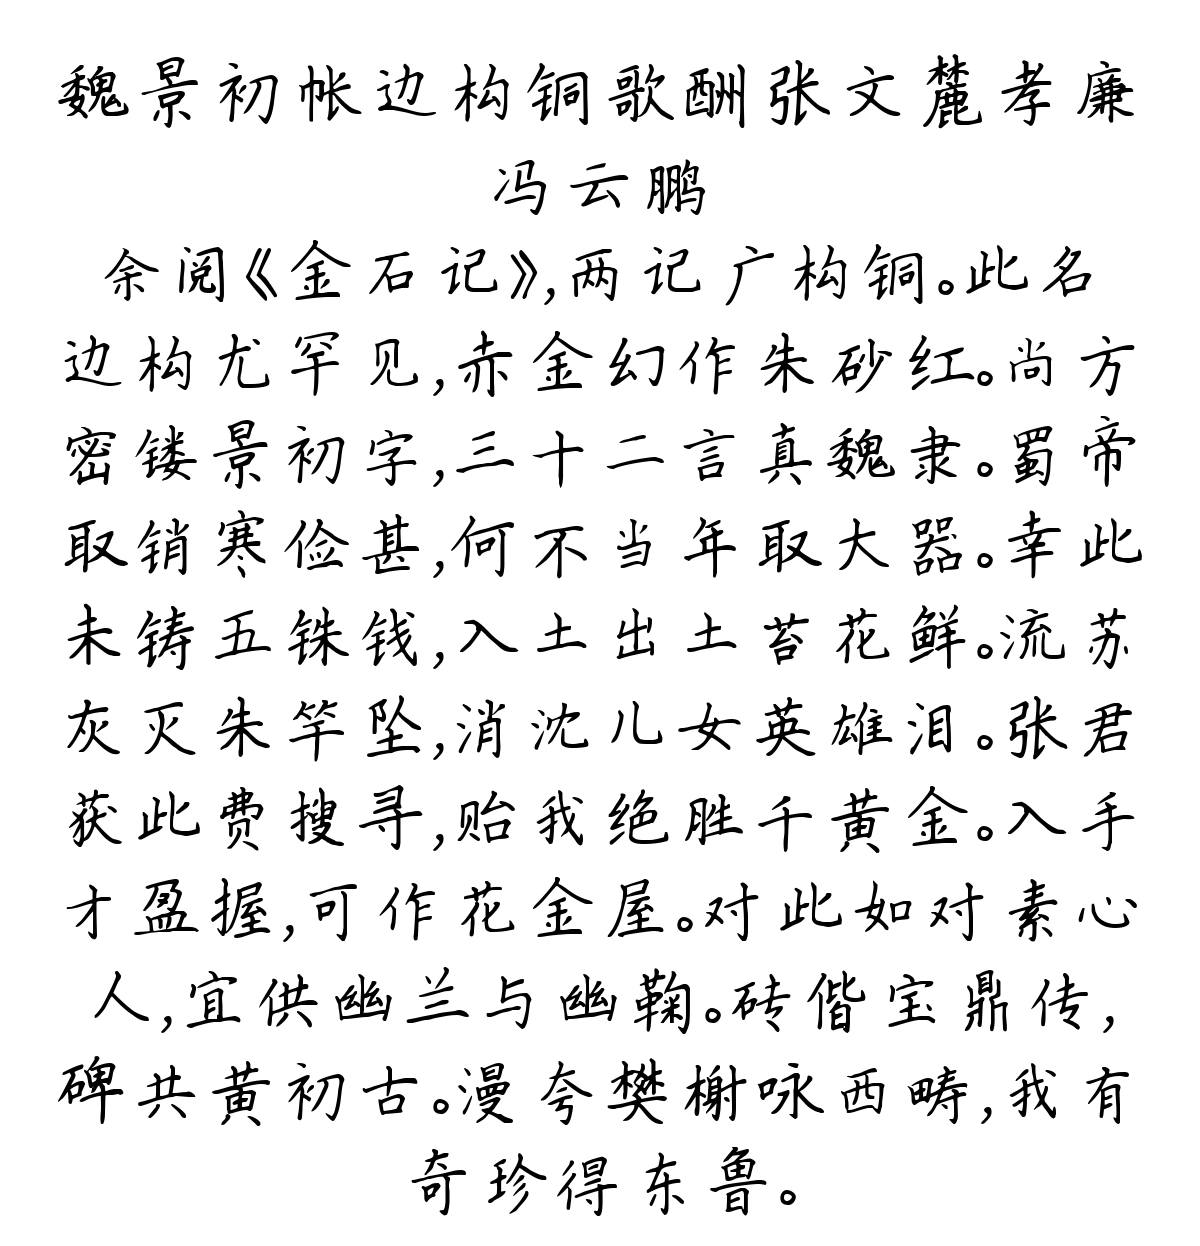 魏景初帐边构铜歌酬张文麓孝廉
冯云鹏
余阅《金石记》,两记广构铜。此名
边构尤罕见,赤金幻作朱砂红。尚方
密镂景初字,三十二言真魏隶。蜀帝
取销寒俭甚,何不当年取大器。幸此
未铸五铢钱,入土出土苔花鲜。流苏
灰灭朱竿坠,消沈儿女英雄泪。张君
获此费搜寻,贻我绝胜千黄金。入手
才盈握,可作花金屋。对此如对素心
人,宜供幽兰与幽鞠。砖偕宝鼎传,
碑共黄初古。漫夸樊榭咏西畴,我有
奇珍得东鲁。